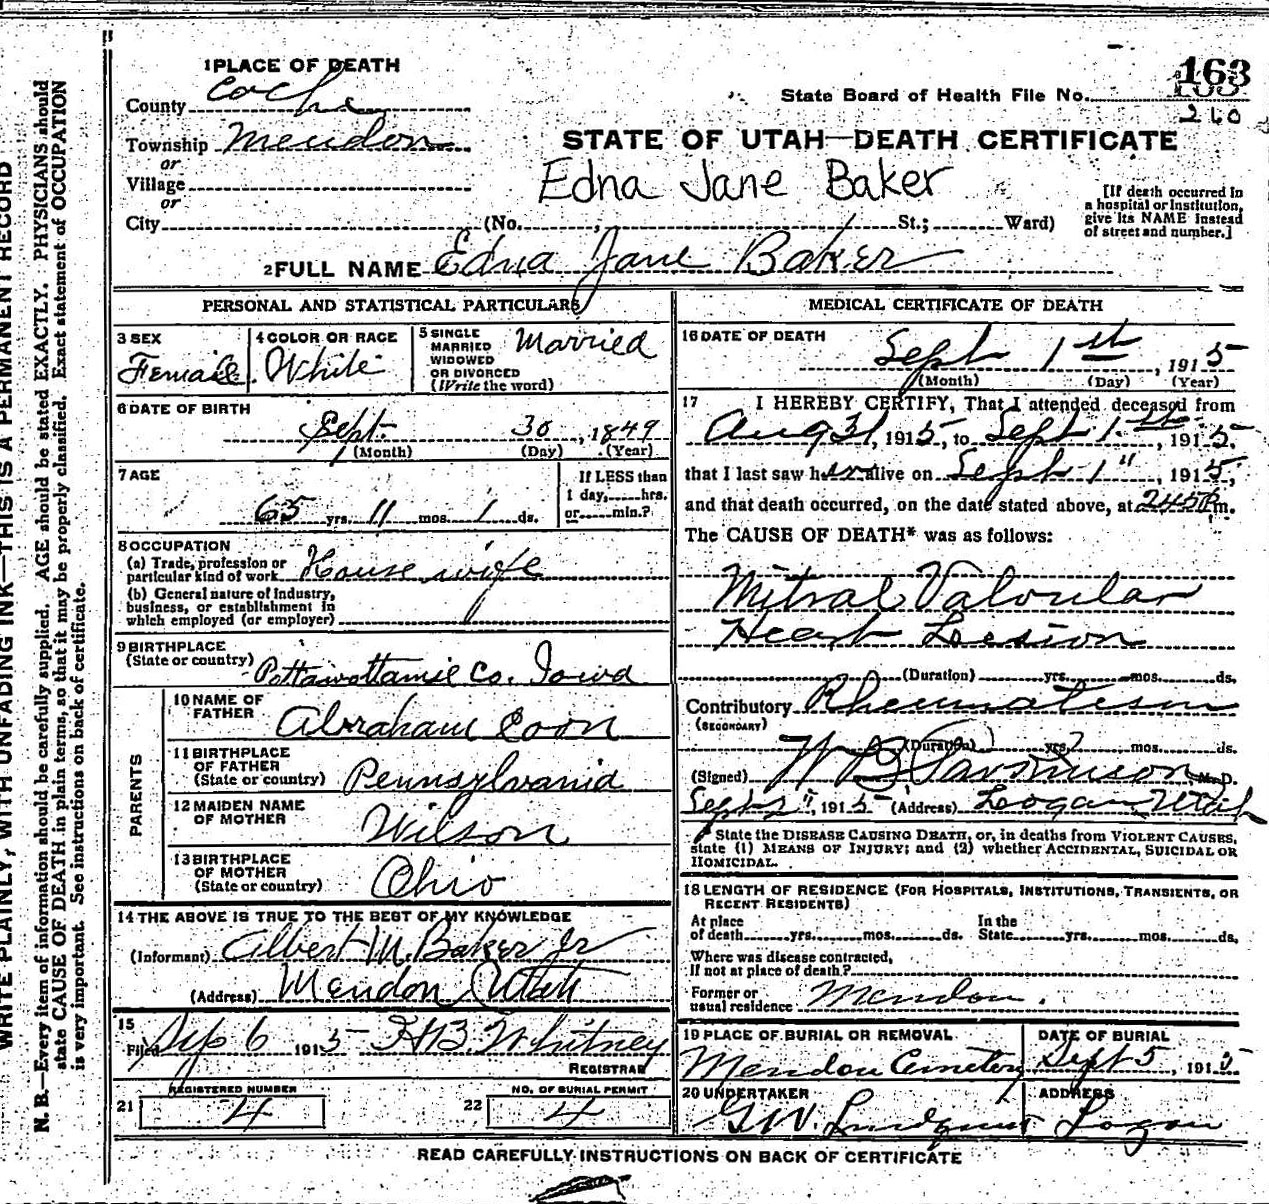 WRITE PLAINLY, WITH UNFADING INK—THIS IS A PERMANENT RECORD
N. B.—Every item of information should be carefully supplied. AGE should be stated EXACTLY. PHYSICIANS should
state CAUSE OF DEATH in plain terms, so that it may be properly classified. Exact statement of OCCUPATION
is very important. See instructions on back of certificate.
1 PLACE OF DEATH
County Cache
Township Mendon
or
Village
or
City (No. , St.; Ward)
State Board of Health File No. 163
260
STATE OF UTAH—DEATH CERTIFICATE
Edna Jane Baker
[If death occurred in
a hospital or institution,
give its NAME instead
of street and number.]
2 FULL NAME Edna Jane Baker
PERSONAL AND STATISTICAL PARTICULARS
3 SEX
Female
4 COLOR OR RACE
White
5 SINGLE
MARRIED
WIDOWED
OR DIVORCED
(Write the word)
Married
6 DATE OF BIRTH
Sept. 30, 1849
(Month) (Day) (Year)
7 AGE
65 yrs. 11 mos. 1 ds.
If LESS than
1 day, hrs.
or min.?
8 OCCUPATION
(a) Trade, profession or
particular kind of work House wife
(b) General nature of industry,
business, or establishment in
which employed (or employer)
9 BIRTHPLACE
(State or country) Pottawattamie Co. Iowa
PARENTS
10 NAME OF
FATHER Abraham Coon
11 BIRTHPLACE
OF FATHER
(State or country) Pennsylvania
12 MAIDEN NAME
OF MOTHER Wilson
13 BIRTHPLACE
OF MOTHER
(State or country) Ohio
14 THE ABOVE IS TRUE TO THE BEST OF MY KNOWLEDGE
(Informant) Albert M. Baker Jr
(Address) Mendon Utah
15
Filed Sep 6 1915 H B. Whitney
REGISTRAR
21 REGISTERED NUMBER
4
22 NO. OF BURIAL PERMIT
4
MEDICAL CERTIFICATE OF DEATH
16 DATE OF DEATH
Sept 1st, 1915
(Month) (Day) (Year)
17 I HEREBY CERTIFY, That I attended deceased from
Aug 31, 1915, to Sept 1st, 1915.
that I last saw her alive on Sept 1", 1915,
and that death occurred, on the date stated above, at 2 45 P m.
The CAUSE OF DEATH* was as follows:
Mitral Valvular
Heart Leesion
(Duration) yrs. mos. ds.
Contributory Rheumatism
(SECONDARY)
(Duration) yrs. ? mos. ds.
(Signed) W B M. D.
Sept 2", 1915 (Address) Logan, Utah
* State the DISEASE CAUSING DEATH, or, in deaths from VIOLENT CAUSES,
state (1) MEANS OF INJURY; and (2) whether ACCIDENTAL, SUICIDAL OR
HOMICIDAL.
18 LENGTH OF RESIDENCE (FOR HOSPITALS, INSTITUTIONS, TRANSIENTS, OR
RECENT RESIDENTS)
At place
of death yrs. mos. ds.
In the
State yrs. mos. ds.
Where was disease contracted,
if not at place of death?
Former or
usual residence Mendon.
19 PLACE OF BURIAL OR REMOVAL
Mendon Cemetery
DATE OF BURIAL
Sept 5, 1915
20 UNDERTAKER
G W. Lindquist
ADDRESS
Logan
READ CAREFULLY INSTRUCTIONS ON BACK OF CERTIFICATE